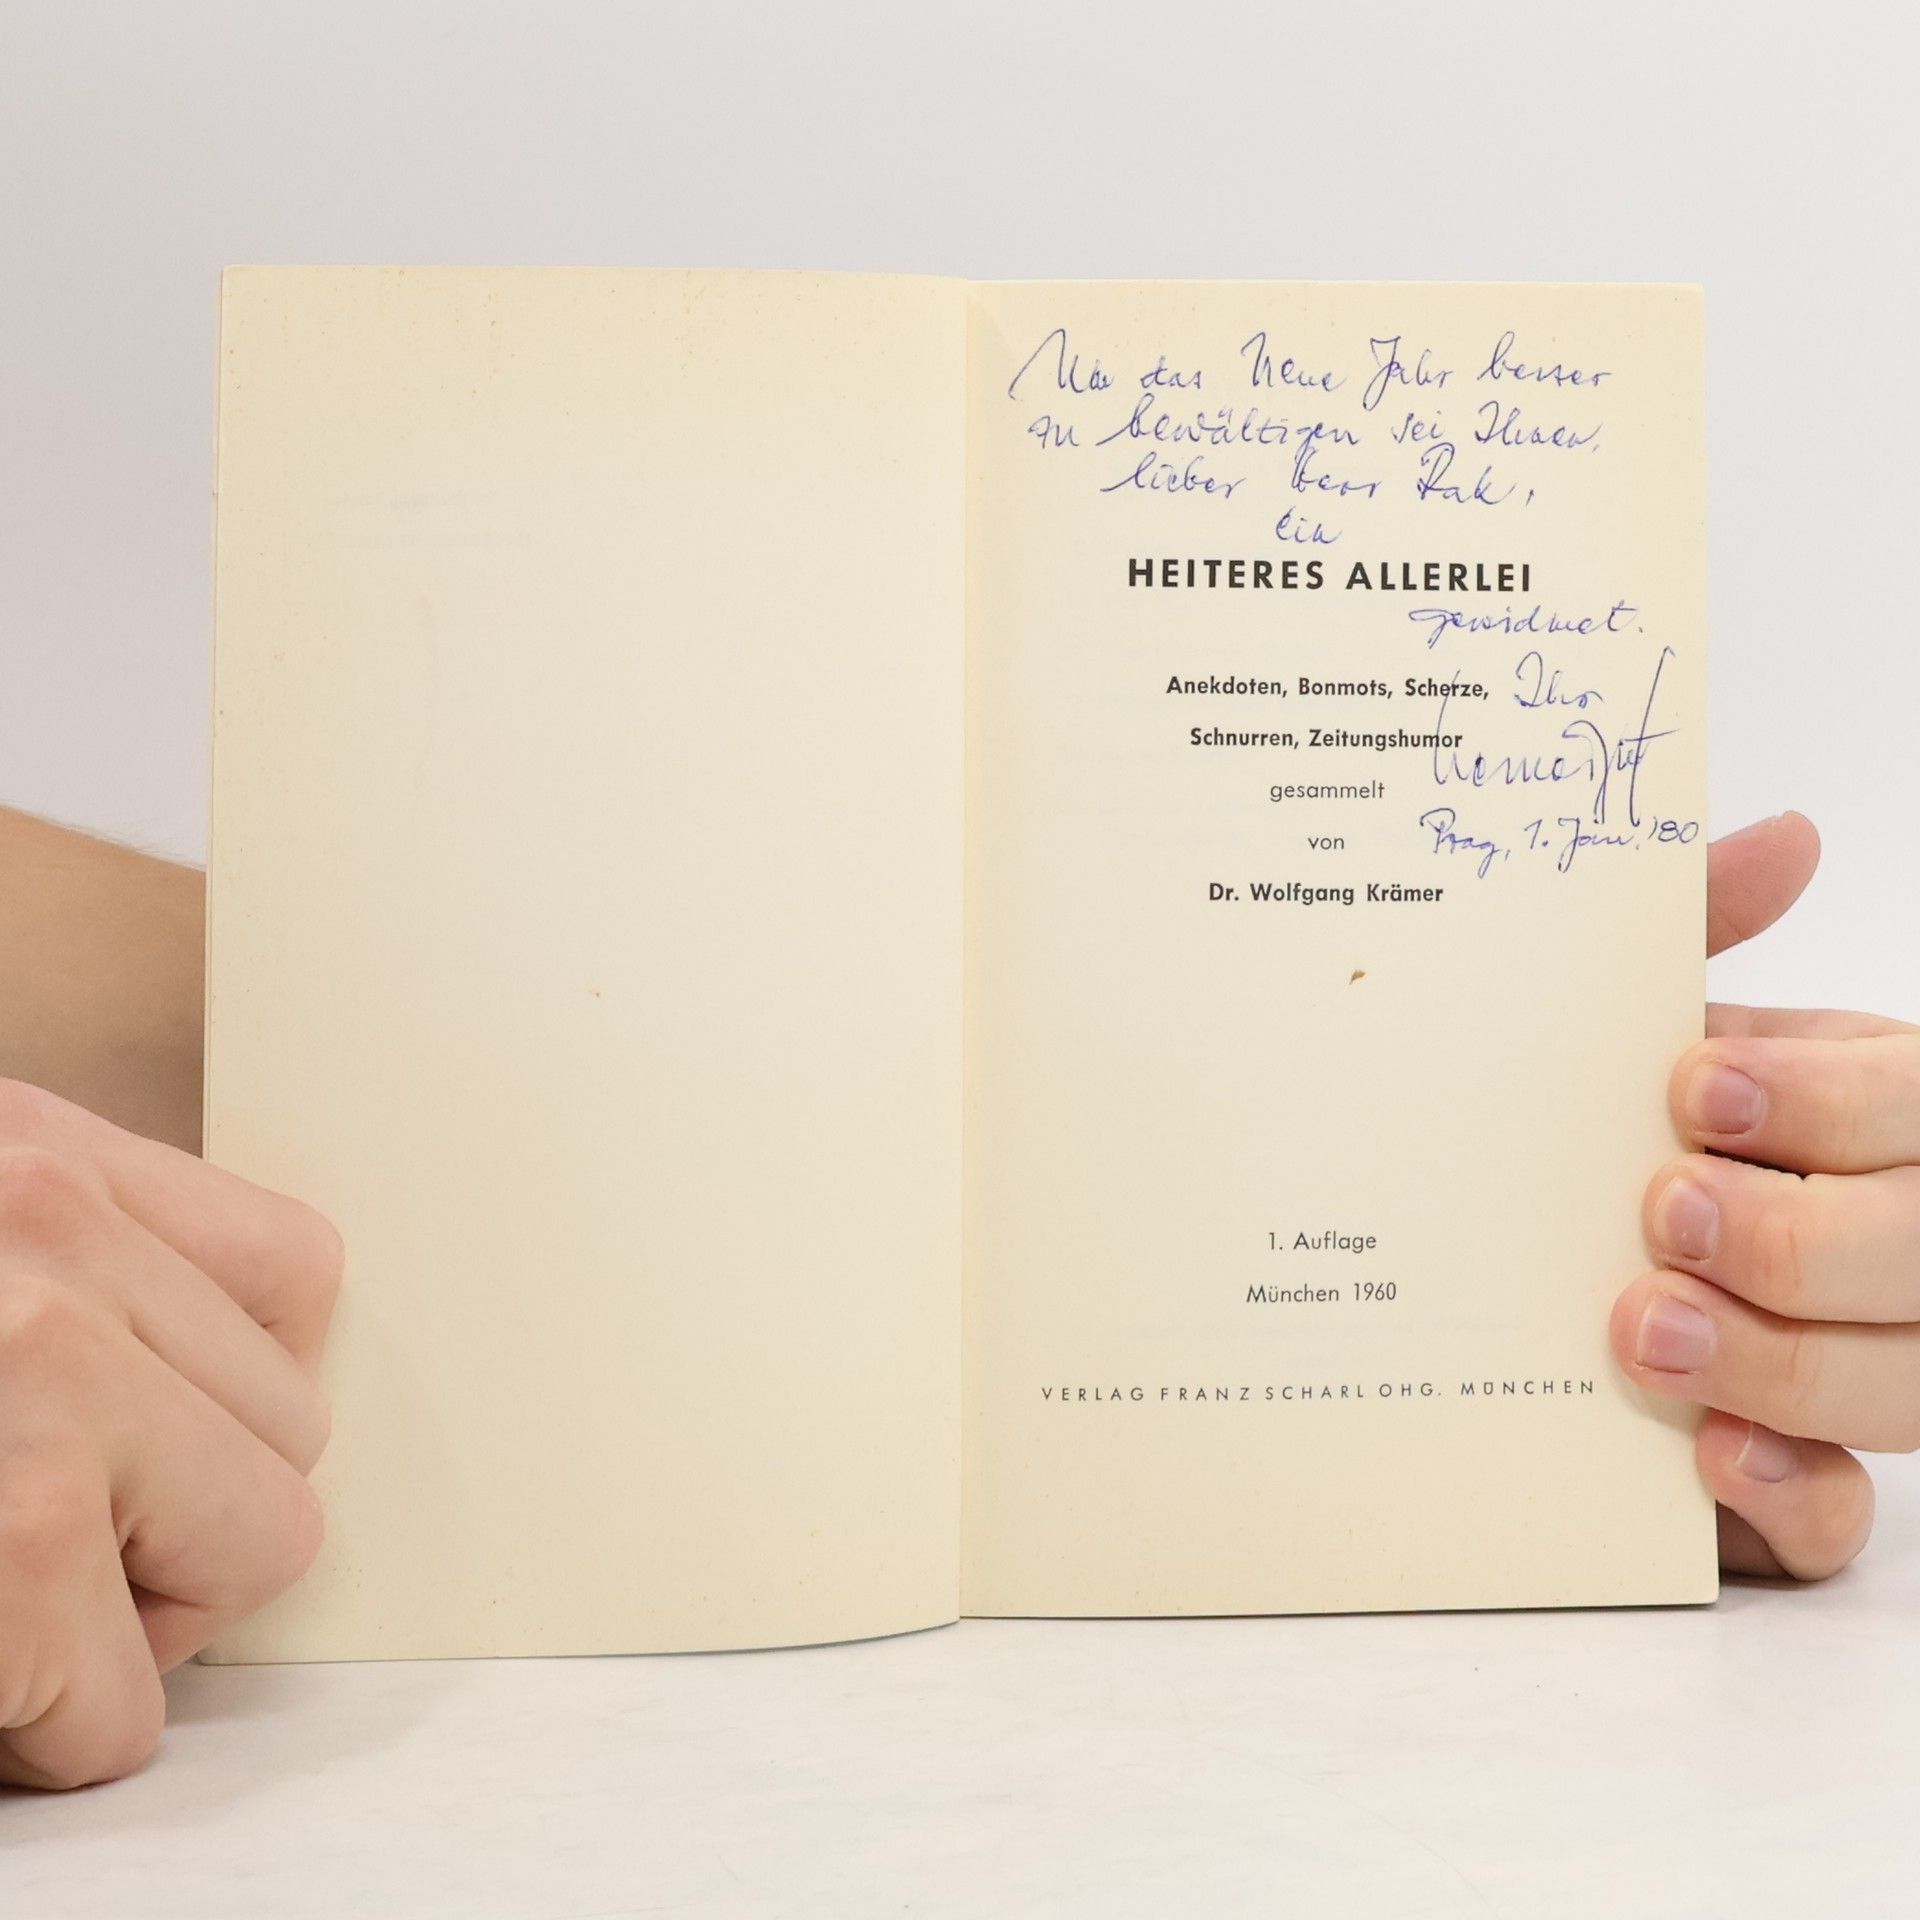 Um das Neue Jahr besser
zu bewältigen sei Ihnen,
lieber Herr Rak,
ein
HEITERES ALLERLEI
gewidmet.
Anekdoten, Bonmots, Scherze,
Ihr
Schnurren, Zeitungshumor
gesammelt
von
Prag, 1. Jän. '80
Dr. Wolfgang Krämer
1. Auflage
München 1960
VERLAG FRANZ SCHARL OHG. MÜNCHEN